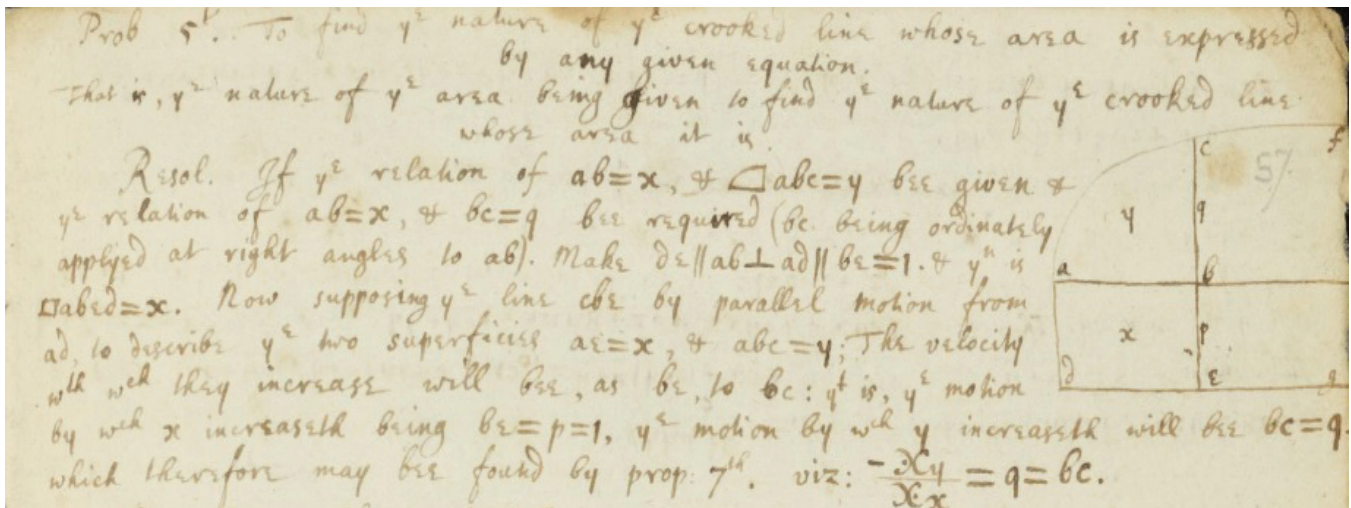 Prob 5t. To find ye nature of ye crooked line whose area is expressed
by any given equation.
That is, ye nature of ye area being given to find ye nature of ye crooked line
whose area it is.
Resol. If ye relation of ab=x, & abc=y bee given &
ye relation of ab=x, & bc=q bee required (bc being ordinately
applyed at right angles to ab). Make de∥ab⊥ad∥be=1. & yn is
□abed=x. Now supposing ye line cbe by parallel motion from
ad, to describe ye two superficies ae=x, & abc=y; The velocity
wth wch they increase will bee, as be, to bc: yt is, ye motion
by wch x increaseth being be=p=1, ye motion by wch y increaseth will bee bc=q.
which therefore may bee found by prop: 7th. viz: −𝒳y/𝒳x = q = bc.
c f
57
y q
a b
x p
d e g